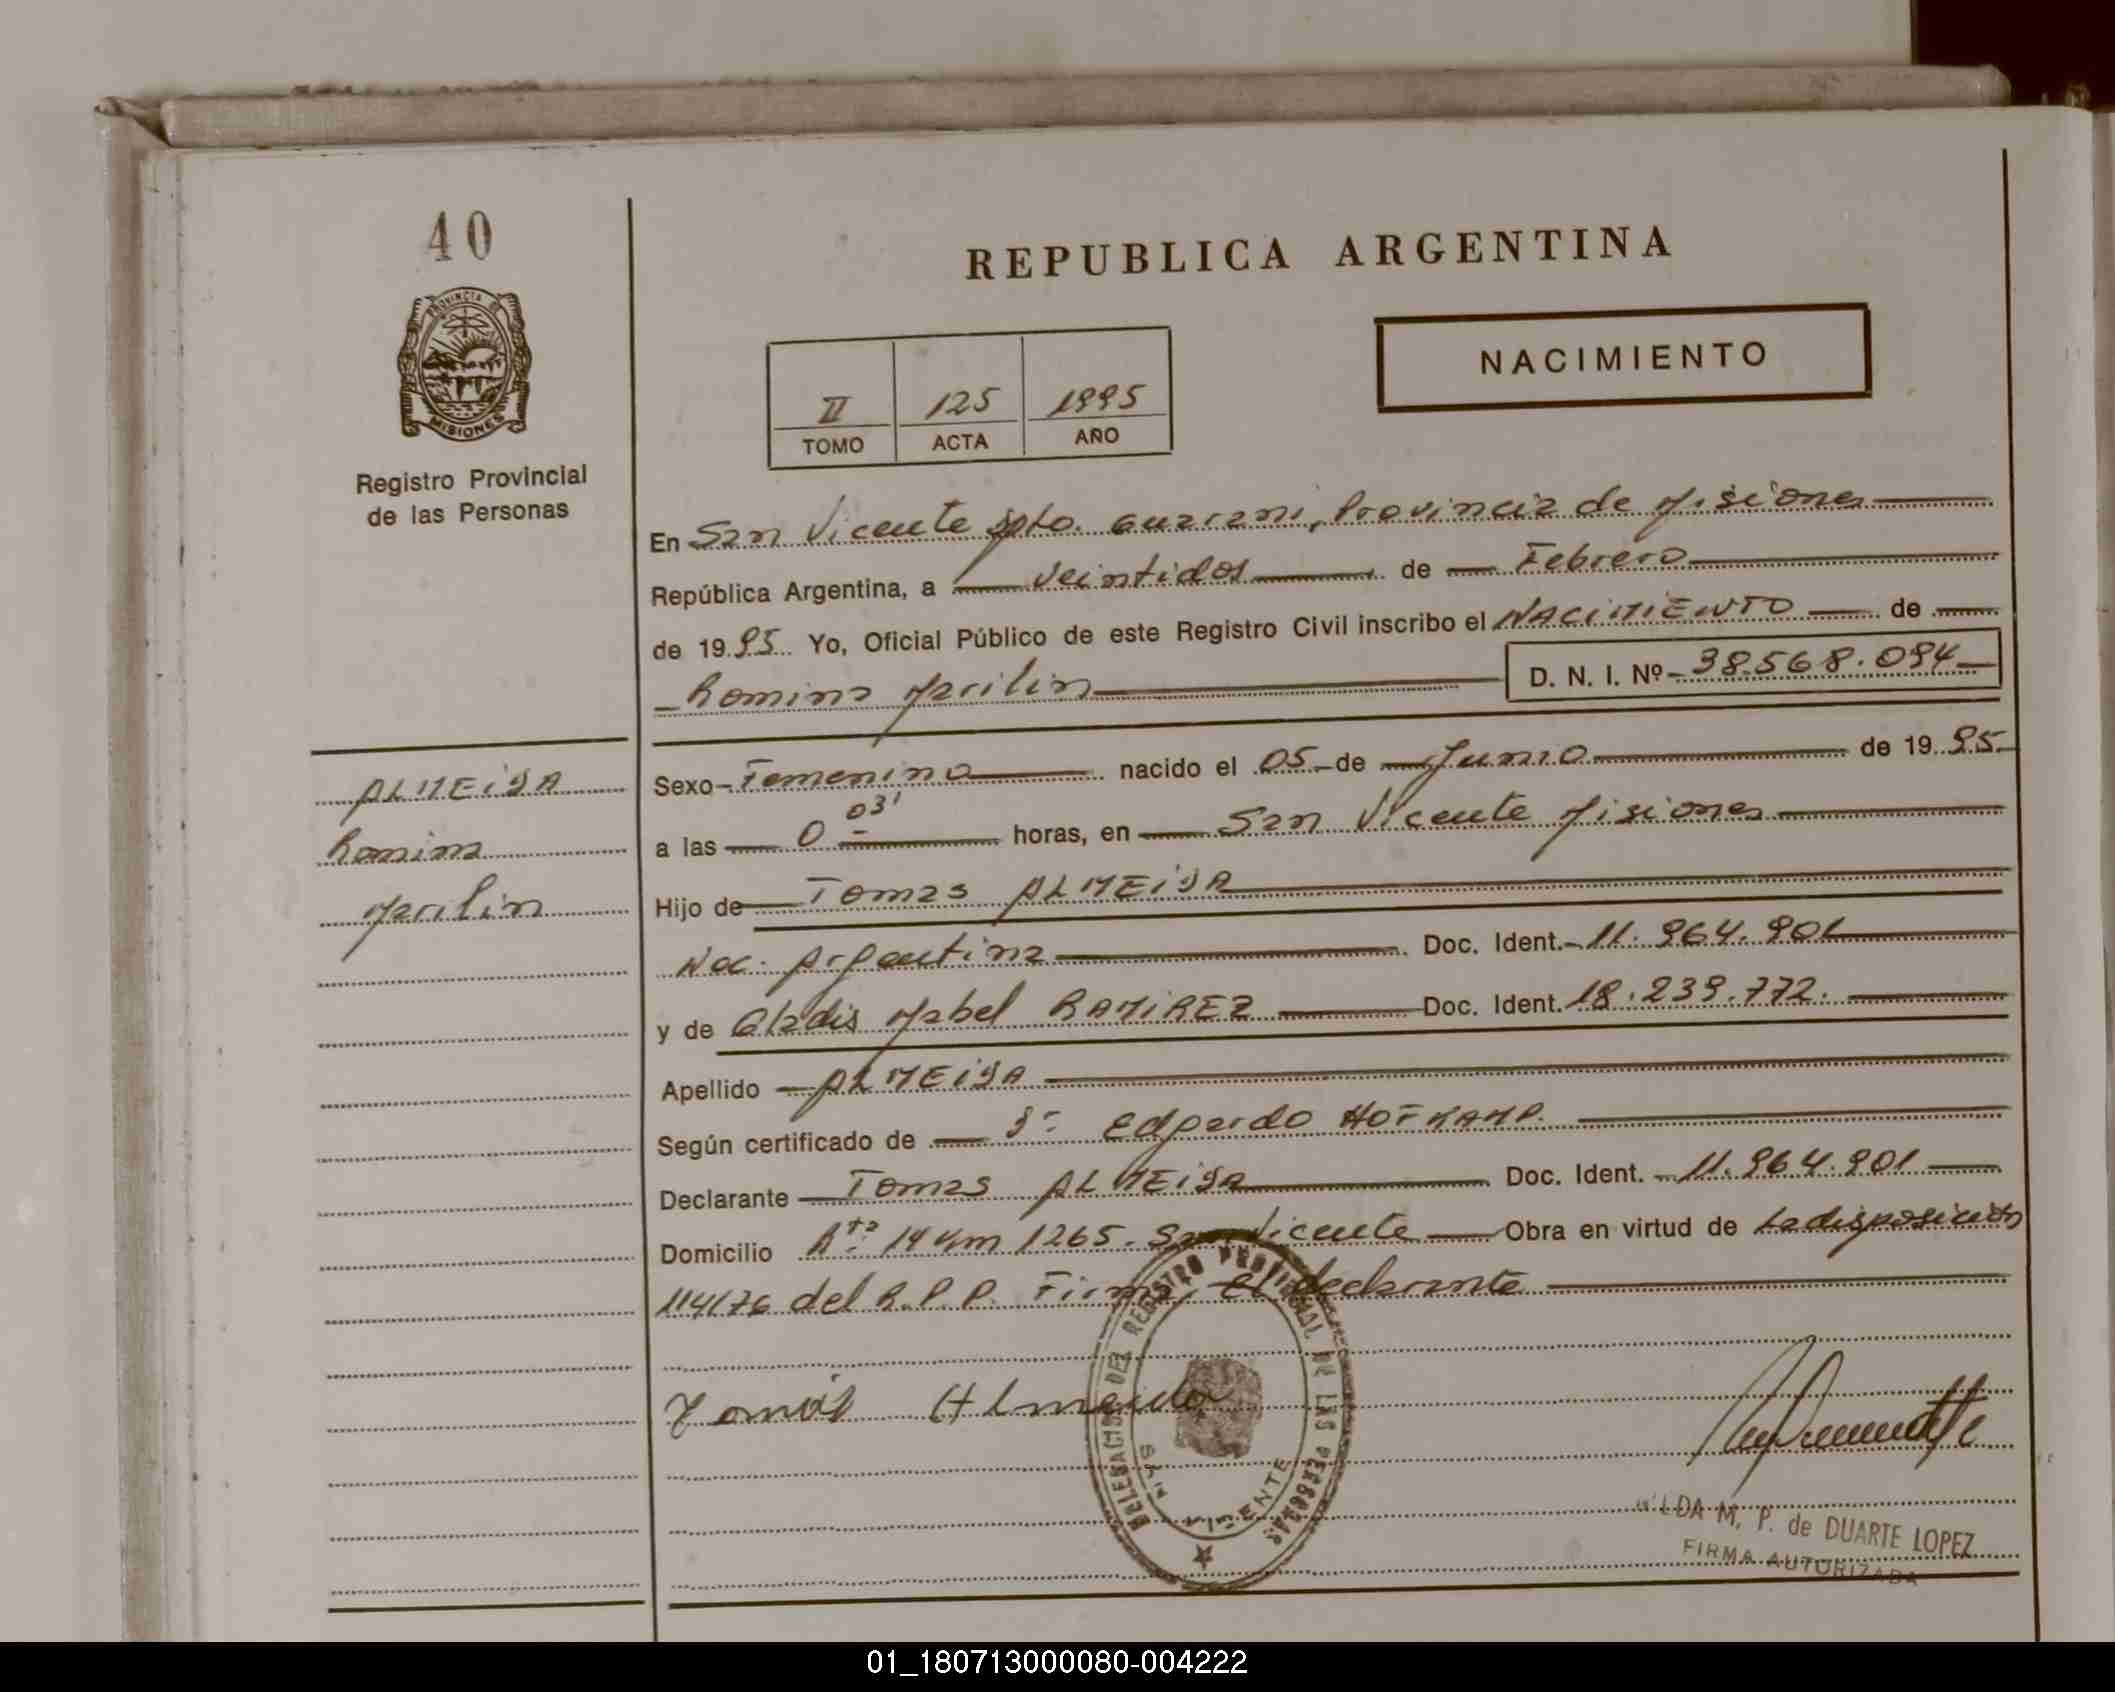 40
PROVINCIA DE
MISIONES
Registro Provincial
de las Personas
REPUBLICA ARGENTINA
NACIMIENTO
II 125 1995
TOMO ACTA AÑO
En San Vicente Dpto. Guarani, Provincia de Misiones
República Argentina, a veintidos de Febrero
de 1995 Yo, Oficial Público de este Registro Civil inscribo el NACIMIENTO de
Romina Marilin D. N. I. Nº 38.568.094
ALMEIDA
Romina
Marilin
Sexo Femenino nacido el 05 de Junio de 1995
a las 0 03' horas, en San Vicente Misiones
Hijo de Tomas ALMEIDA
Nac. Argentina Doc. Ident. 11.964.901
y de Gladis Mabel RAMIREZ Doc. Ident. 18.239.772.
Apellido ALMEIDA
Según certificado de Dr. Edgardo
Declarante Tomas ALMEIDA Doc. Ident. 11.964.901
Domicilio Rta. 14 km 1265. San Vicente Obra en virtud de La disposición
114/76 del R.P.P. Firma, El declarante
Tomás Almeida
DELEGACION DEL REGISTRO PROVINCIAL DE LAS PERSONAS
SAN VICENTE
LDA M. P. de DUARTE LOPEZ
FIRMA AUTORIZADA
01_180713000080-004222